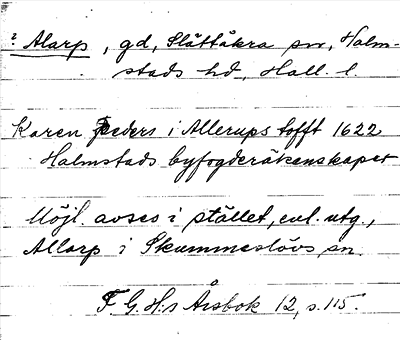 ? Alarp, gd, Slättåkra sn, Halm-
stads hd, Hall. l.
Karen Peders i Allerups tofft 1622
Halmstads byfogderäkenskaper
Möjl. avses i stället, enl. utg.,
Allarp i Skummeslövs sn.
F G. H:s Årsbok 12, s. 115.